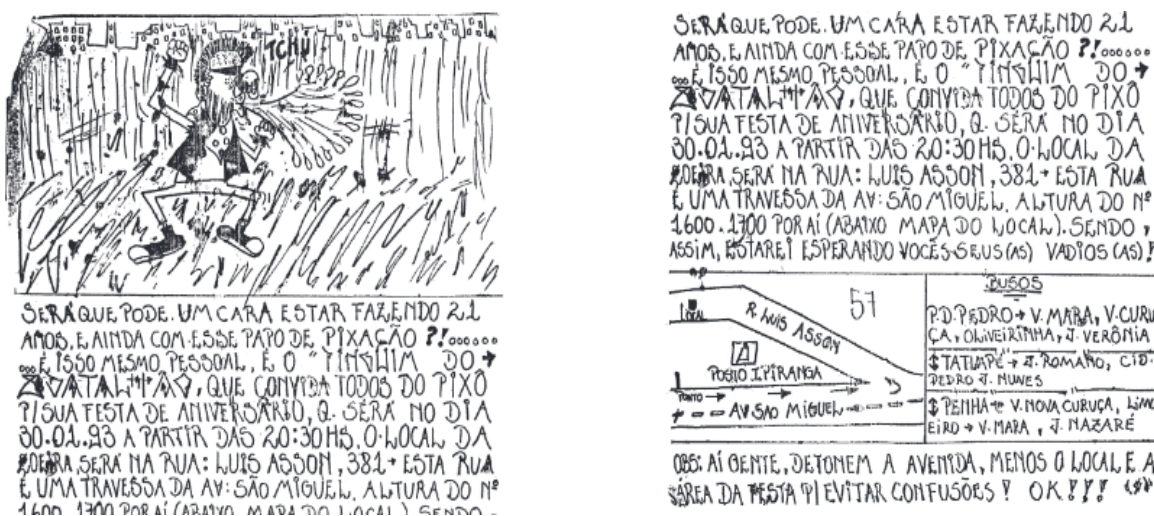 TCHÜ
SERÁ QUE PODE. UM CARA ESTAR FAZENDO 21
ANOS, E AINDA COM ESSE PAPO DE PIXAÇÃO ?!......
...É ISSO MESMO PESSOAL, É O "TINGUIM DO →
, QUE CONVIDA TODOS DO PIXÔ
P/ SUA FESTA DE ANIVERSÁRIO, Q. SERÁ NO DIA
30.01.93 A PARTIR DAS 20:30 HS, O LOCAL DA
ZOEIRA, SERÁ NA RUA: LUIS ASSON, 381 → ESTA RUA
É UMA TRAVESSA DA AV: SÃO MIGUEL, ALTURA DO Nº
1600.1700 POR AÍ (ABAIXO MAPA DO LOCAL). SENDO
SERÁ QUE PODE. UM CARA ESTAR FAZENDO 21
ANOS, E AINDA COM ESSE PAPO DE PIXAÇÃO ?!......
...É ISSO MESMO PESSOAL, É O "TINGUIM DO →
, QUE CONVIDA TODOS DO PIXÔ
P/ SUA FESTA DE ANIVERSÁRIO, Q. SERÁ NO DIA
30.01.93 A PARTIR DAS 20:30 HS, O LOCAL DA
ZOEIRA, SERÁ NA RUA: LUIS ASSON, 381 → ESTA RUA
É UMA TRAVESSA DA AV: SÃO MIGUEL, ALTURA DO Nº
1600.1700 POR AÍ (ABAIXO MAPA DO LOCAL). SENDO,
ASSIM, ESTAREI ESPERANDO VOCÊS SEUS(AS) VADIOS (AS)!
LOCAL
R. LUIS ASSON
57
POSTO IPIRANGA
PONTO →
AV SAO MIGUEL
BUSOS
P.D.PEDRO → V. MARA, V. CURU
ÇA, OLIVEIRINHA, J. VERÔNIA
$ TATUAPÉ → J. ROMANO, CID.
PEDRO J. NUNES
$ PENHA → V. NOVA CURUÇA, LIMO
EIRO → V. MARA, J. NAZARÉ
OBS: AÍ GENTE, DETONEM A AVENIDA, MENOS O LOCAL E A
ÁREA DA FESTA P/ EVITAR CONFUSÕES ! OK !!!